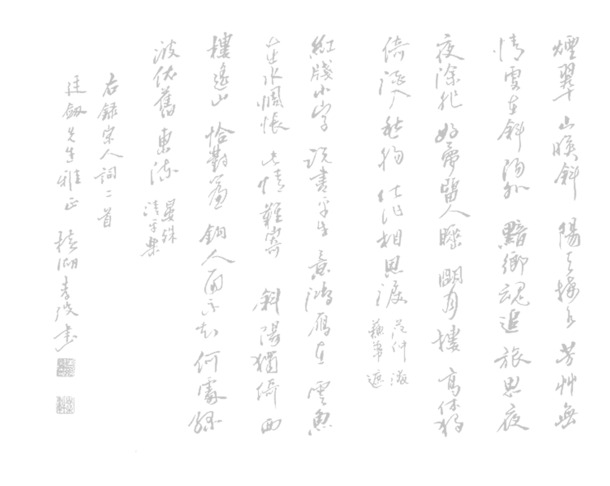 煙翠山暎斜陽天接水芳艸無
情更在斜陽外黯鄉魂追旅思夜
夜除非好夢留人睡明月樓高休獨
倚酒入愁腸化作相思淚 范仲淹
蘇幕遮
紅牋小字說盡平生意鴻雁在雲魚
在水惆悵此情難寄斜陽獨倚西
樓遙山恰對簾鉤人面不知何處綠
波依舊東流 晏殊
清平樂
右錄宋人詞二首
先生雅正